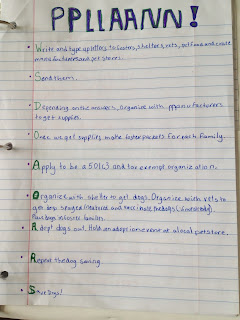 PPLLAANN!
Write and type up letters to fosters, shelters, vets, pet food and crate
manufacturers and pet stores.
Send them.
Depending on the answers, organize with manufacturers
to get supplies.
Once we get supplies, make foster packets for each family.
Apply to be a 501(c) and tax exempt organization.
Organize with shelter to get dogs. Organize with vets to
get dogs spayed/neutered and vaccinate the dogs (if needed).
Put dogs in foster families.
Adopt dogs out. Hold an adoption event at a local pet store.
Repeat the dog saving.
Save Dogs!